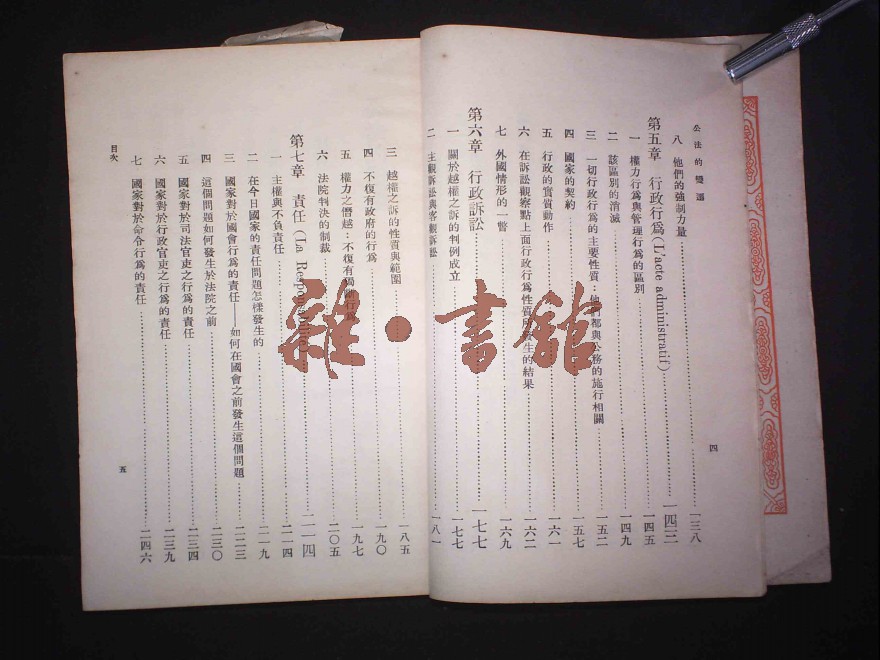 公法的變遷
八 他們的強制力量 一三八
第五章 行政行爲(L'acte administratif) 一四三
一 權力行爲與管理行爲的區別 一四五
二 該區別的消滅 一四九
三 一切行政行爲的主要性質：他們都與公務的施行相關 一五二
四 國家的契約 一五七
五 行政的實質動作 一六一
六 在訴訟觀察點上面行政行爲性質所發生的結果 一六二
七 外國情形的一瞥 一六九
第六章 行政訴訟 一七七
一 關於越權之訴的判例成立 一七七
二 主觀訴訟與客觀訴訟 一八一
四
三 越權之訴的性質與範圍 一八五
四 不復有政府的行爲 一九〇
五 權力之僭越：不復有 一九七
六 法院判決的制裁 二〇五
第七章 責任(La Responsabilité) 二一四
一 主權與不負責任 二一四
二 在今日國家的責任問題怎樣發生的 二一九
三 國家對於國會行爲的責任——如何在國會之前發生這個問題 二二三
四 這個問題如何發生於法院之前 二三〇
五 國家對於司法官吏之行爲的責任 二三四
六 國家對於行政官吏之行爲的責任 二三九
七 國家對於命令行爲的責任 二四六
目次
五
雜•書館